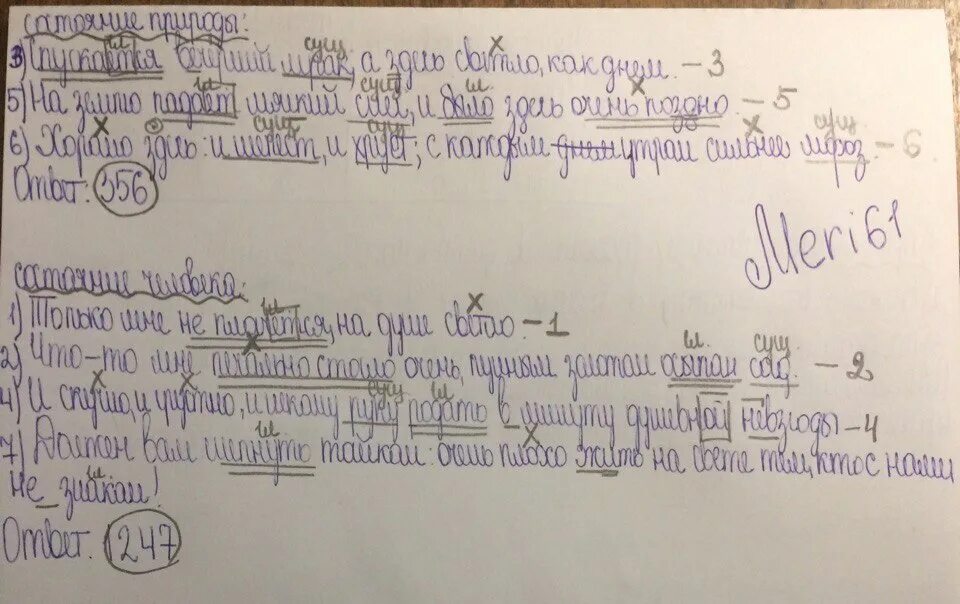 состояние природы:
3) Спускается синий мрак, а здесь светло, как днем. - 3
5) На землю падает мягкий снег, и было здесь очень поздно - 5
6) Хорошо здесь: и шелест, и хруст; с каждым днем утром сильнее мороз. - 6
Ответ: 356
Meri61
состояние человека:
1) Только мне не плачется, на душе светло - 1
2) Что-то мне печально стало очень, пушным золотом осыпан сад. - 2
4) И скучно, и грустно, и некому руку подать в минуту душевной невзгоды - 4
7) Должен вам шепнуть тайком: очень плохо жить на свете тем, кто с нами
не знаком!
Ответ: 1247